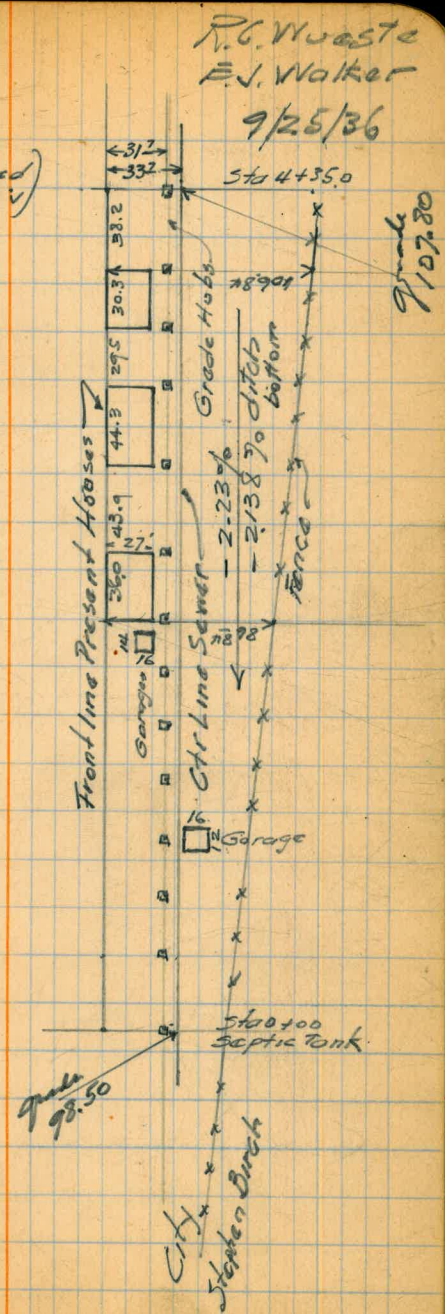 R.C. Wueste
E.J. Walker
9/25/36
31.7
33.7
Sta 4+35.0
grade
107.80
38.2
30.3
29.5
44.3
43.9
27.
36.0
Front line Present Houses
Grade Hubs
- 2.23%
- 2.138 % ditch
bottom
Fence
Ctr Line Sewer
14
16
Garages
16
12
Garage
Sta 0+00
Septic Tank
grade
98.50
City
Stephen Birch